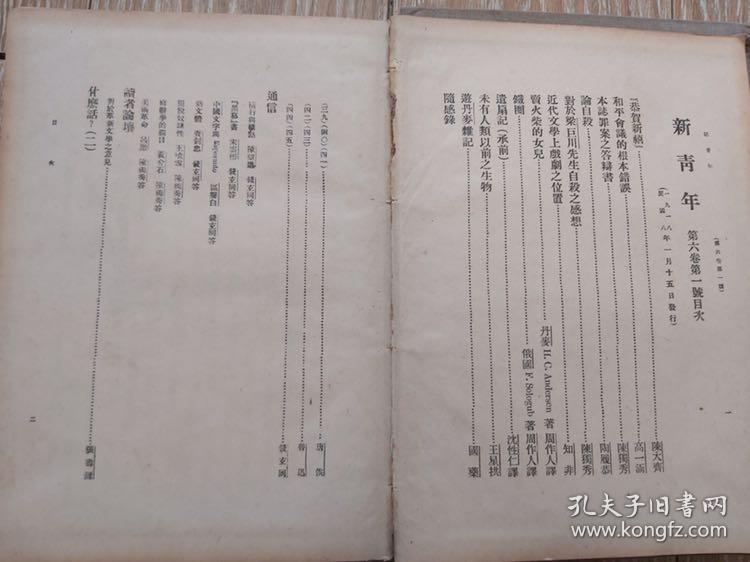 (第六卷第一號)
新青年
第六卷第一號目次
年一月十五日發行)
「恭賀新禧」 陳大齊
和平會議的根本錯誤 高一涵
本誌罪案之答辯書 陳獨秀
論自殺 陶履恭
對於梁巨川先生自殺之感想 陳獨秀
近代文學上戲劇之位置 知非
賣火柴的女兒 丹麥 H. C. Andersen 著 周作人譯
鐵圈 俄國 F. Sologub 著 周作人譯
遺扇記(承前) 沈性仁譯
未有人類以前之生物 王星拱
遊丹麥雜記 國藥
隨感錄
一
(三九)(四〇)(四一) 唐俟
(四二)(四三) 魯迅
(四四)(四五) 錢玄同
通信
橫行與標點 錢玄同答
「黑幕」書 宋雲彬 錢玄同答
中國文字與 Esperanto 區聲白 錢玄同答
新文體 查釗忠 錢玄同答
陳獨秀答
陳獨秀答
美術革命 呂澂 陳獨秀答
讀者論壇
對於革新文學之意見
什麼話?(二)
目次
二
孔夫子旧书网
www.kongfz.com